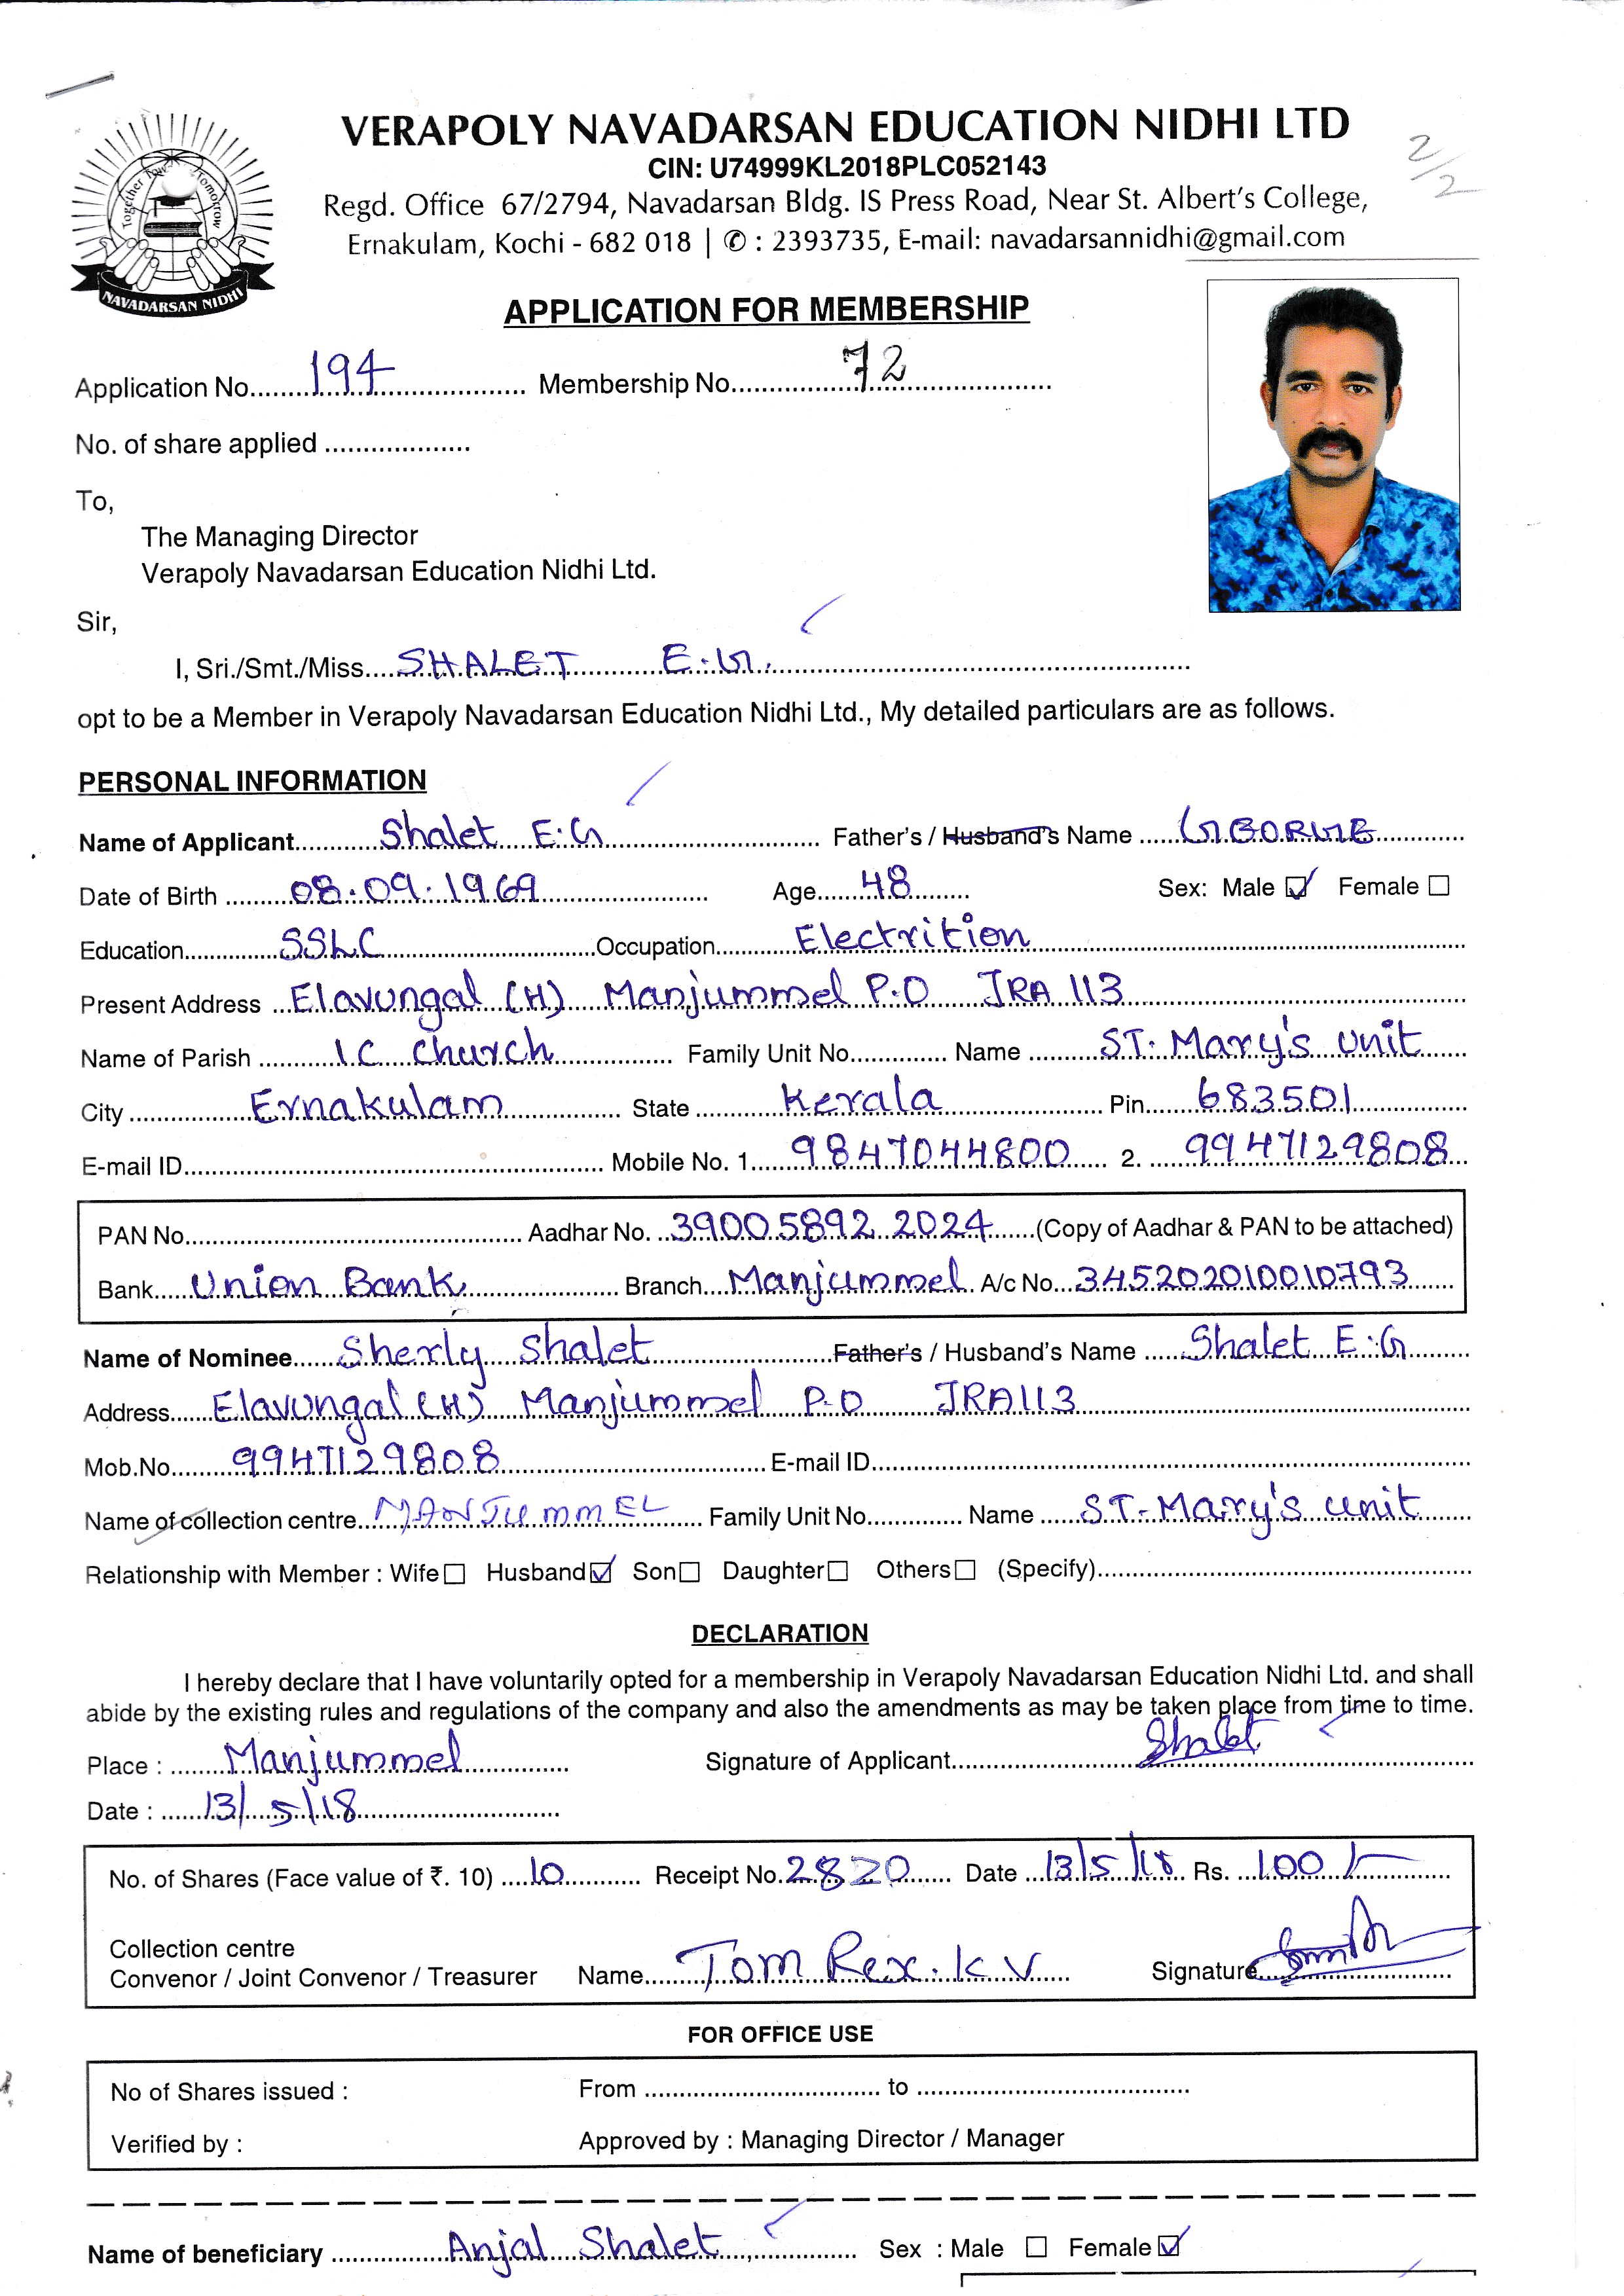 VERAPOLY NAVADARSAN EDUCATION NIDHI LTD
CIN: U74999KL2018PLC052143
Regd. Office 67/2794, Navadarsan Bldg. IS Press Road, Near St. Albert's College,
Ernakulam, Kochi - 682 018 | ✆ : 2393735, E-mail: navadarsannidhi@gmail.com
2/2
Together Towards Tomorrow
NAVADARSAN NIDHI
APPLICATION FOR MEMBERSHIP
Application No. 194 Membership No. 72
No. of share applied
To,
The Managing Director
Verapoly Navadarsan Education Nidhi Ltd.
Sir,
I, Sri./Smt./Miss. SHALET E.G.
opt to be a Member in Verapoly Navadarsan Education Nidhi Ltd., My detailed particulars are as follows.
PERSONAL INFORMATION
Name of Applicant Shalet E.G Father's / Husband's Name GEORGE
Date of Birth 08.09.1969 Age 48 Sex: Male ☑ Female ☐
Education SSLC Occupation Electrition
Present Address Elavungal (H) Manjummel P.O JRA 113
Name of Parish I C church Family Unit No. Name ST. Mary's unit
City Ernakulam State Kerala Pin 683501
E-mail ID Mobile No. 1. 9847044800 2. 9947129808
PAN No. Aadhar No. 3900 5892 2024 (Copy of Aadhar & PAN to be attached)
Bank Union Bank Branch Manjummel A/c No. 345202010010793
Name of Nominee Sherly Shalet Father's / Husband's Name Shalet E.G
Address Elavungal (H) Manjummel P.O JRA113
Mob.No. 9947129808 E-mail ID
Name of collection centre MANJUMMEL Family Unit No. Name ST. Mary's unit
Relationship with Member : Wife ☐ Husband ☑ Son ☐ Daughter ☐ Others ☐ (Specify)
DECLARATION
I hereby declare that I have voluntarily opted for a membership in Verapoly Navadarsan Education Nidhi Ltd. and shall
abide by the existing rules and regulations of the company and also the amendments as may be taken place from time to time.
Place : Manjummel Signature of Applicant Shalet
Date : 13/5/18
No. of Shares (Face value of ₹. 10) 10 Receipt No. 2820 Date 13/5/18 Rs. 100/-
Collection centre
Convenor / Joint Convenor / Treasurer Name Tom Rex. K V Signature
FOR OFFICE USE
No of Shares issued : From to
Verified by : Approved by : Managing Director / Manager
Name of beneficiary Anjal Shalet Sex : Male ☐ Female ☑